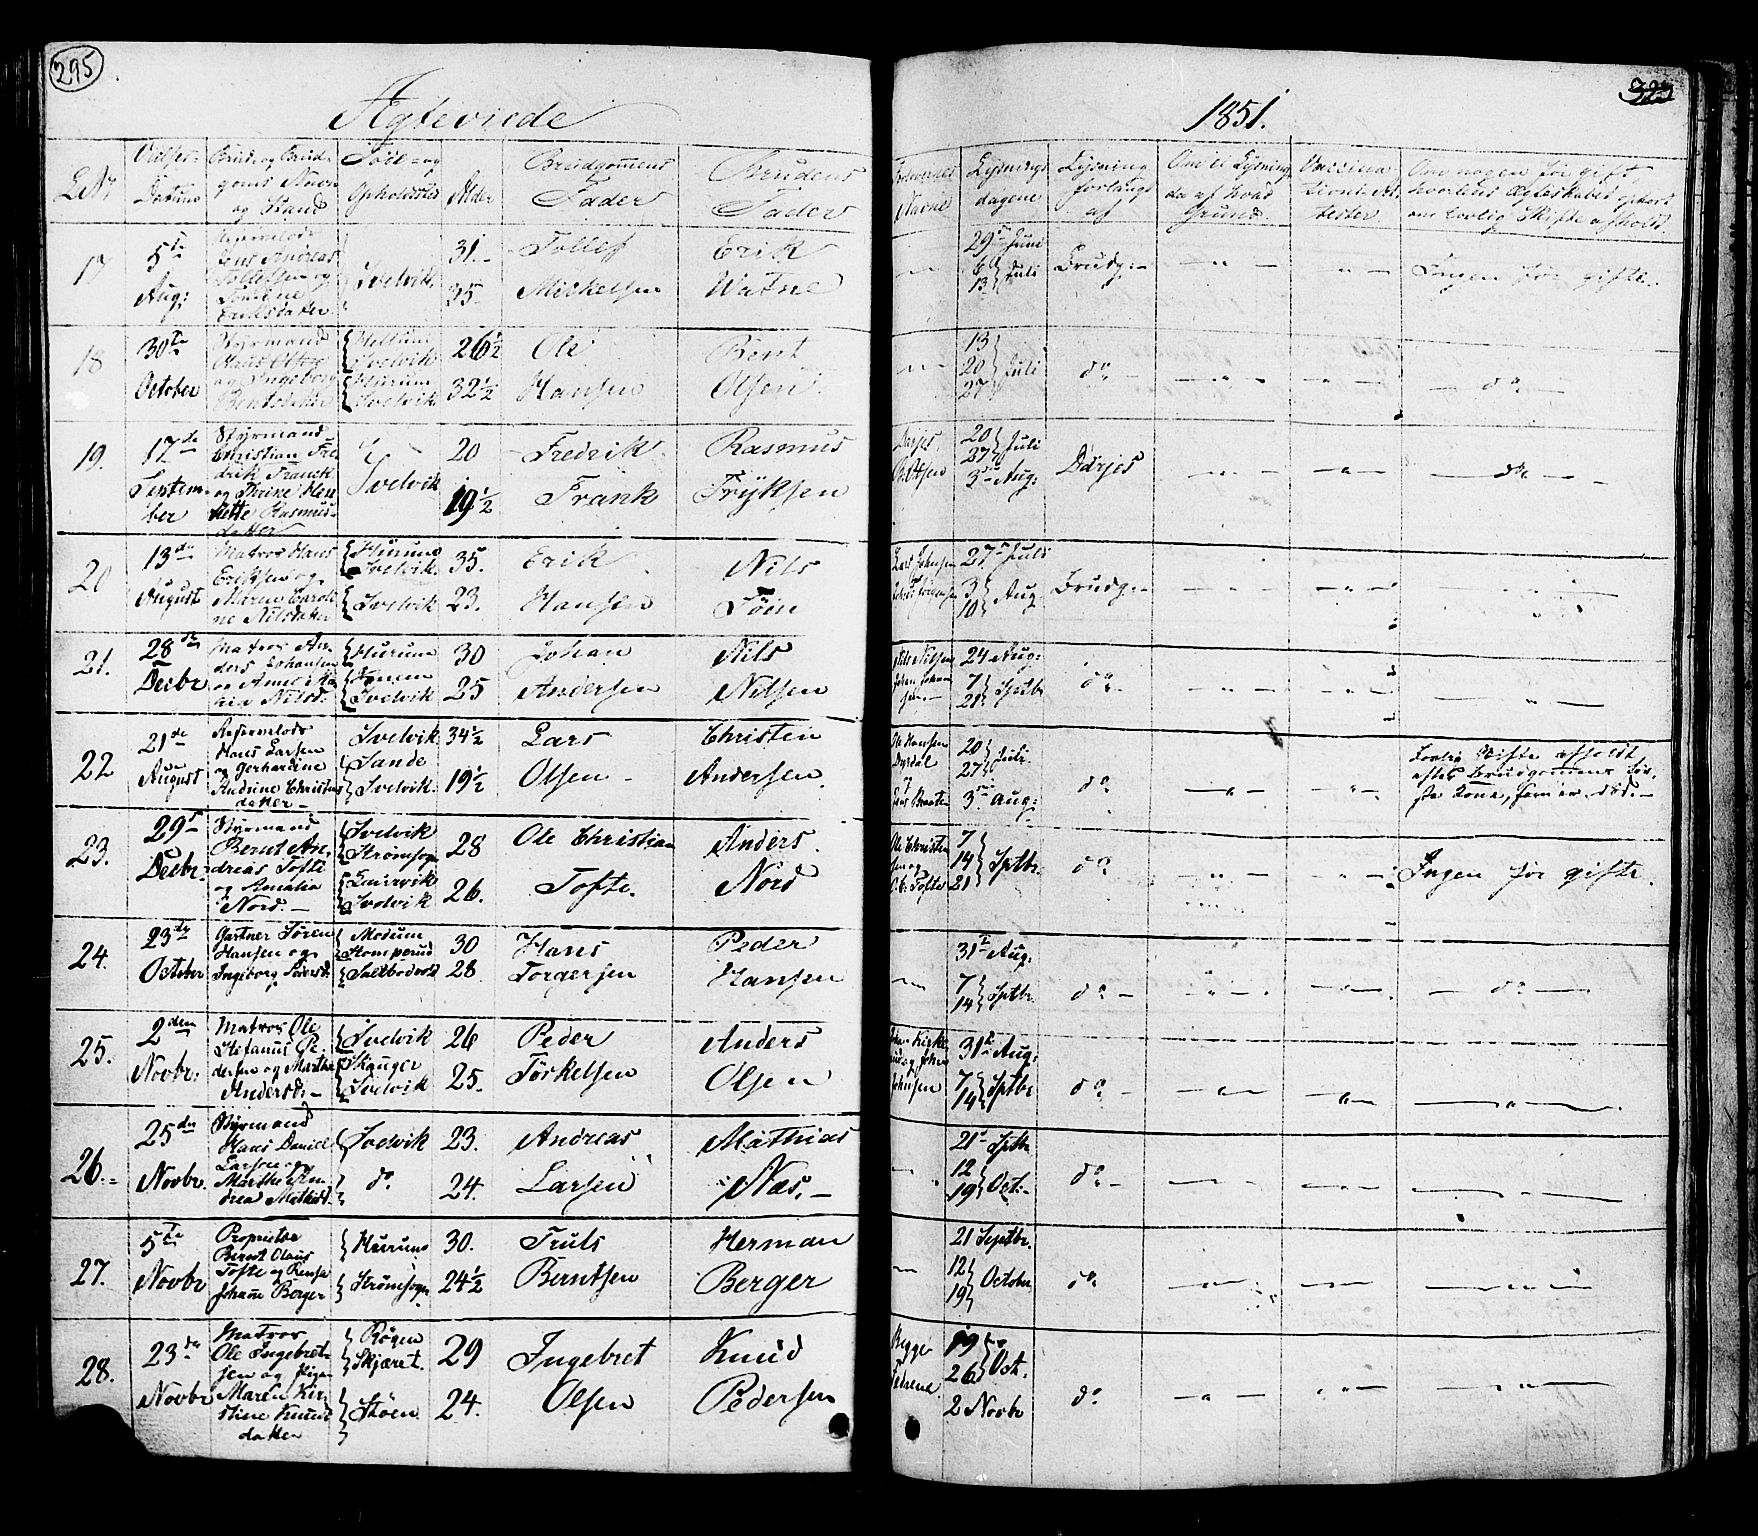 295
323
Ægteviede
1851.
L.Nr. Datum Brud og Brud-
goms Navn
og Stand
Føde- og
Opholdssted
Alder
Brudgommens
Fader
Brudens
Fader
Forlovernes
Navne
Lysnings
dagene
Lysning
forlangt
af
Om ei Lysning,
da af hvad
Grund.
Vaccina
tions At
tester
Om nogen før gift
hvorledes Ægteskabet ophørt
om lovlig Skifte afholdt.
17
5te
Aug:
Jens Andreas
Tollefsen og
Eriksdatter
Svelvik.
31.-
35.
Tollef
Mickelsen
Erik
Watne
29de Juni
6
13 Juli
Brudg:-
Ingen før gifte.
18
30te
October
Styrmand
Hans Olsen
og Ingeborg
Bentsdatter
Hurum
Svelvik
Hurum
Svelvik
26½
32½
Ole
Hansen
Bent
Olsen
13
20
27
Juli
do
do
19.
17de
Septem-
ber
Styrmand
Christian Fre
drik Frank
og Thrine Hen
riette Rasmus-
datter
Svelvik
20
19½
Fredrik
Frank
Rasmus
Tryksen
20
27
Juli
3die Aug:
Børjes
do
20
13de
August
Matros Hans
Eriksen og
Maren Caroli
ne Nilsdatter
Hurum
Svelvik.
Svelvik
35.
23.
Erik
Hansen
Nils
Löin
27de Juli
3
10
Aug
Brudg:-
21.
28de
Decbr
Matros An-
ders Johansen
og Anne Ka
Nilsd.
Hurum
Svelvik
30
25
Johan
Andersen
Nils
Nilsen
Nils Nilsen
24 Aug:
7
21
Sptbr
do
22
21de
August
Hans Larsen
og Gerhardine
Andrine Christens
datter-
Svelvik
Sande
Svelvik.
34½
19½
Lars
Olsen-
Christen
Andersen.
Ole Hansen
20
27
Juli
3die Aug:
do
Lovlig Skifte afholdt
efter Brudgomens før,
ste Kone, som er død.-
23.
29de
Decbr.
Styrmand
Bernt An,
dreas Tofte
og Amalia
Nord.-
Svelvik
Strömsogn
Svelvik
28
26.
Ole Christian
Tofte.
Anders
Nord
Ole Christen
sen og
O.C. Toftes
7
14
21
Sptbr.
do
Ingen før gifte.
24.
23de
October
Gartner Søren
Hansen og
Ingeborg Pedersd.
Modum
Komperud
Saltboden
30
28.
Hans
Torgersen
Peder
Hansen
31te Aug:
7
14
Sptbr.
do-
do
25.
2den
Novbr.
Matros Ole
Stefanus Pe-
dersen og Marthe
Andersd:-
Svelvik
Skauger
Svelvik
26
25.
Peder
Torkelsen
Anders
Olsen
Johnsen
31te Aug:
7
14
Sptbr
do
26.-
25de
Novbr.
Styrmand
Hans Daniel
Larsen og
Marthe An,
drea Mathisd.
Svelvik
do.
23.
24.
Andreas
Larsen
Mathias
Næs.-
21de Sptbr
12
19
Oct.-
do-
27.
5te
Novbr
Proprietær
Bernt Olaus
Tofte og
Johanne Berger
Hurum
Strömsogn
30.
24½
Truls
Berntsen
Herman
Berger
21 Septbr.
12
19
October
do
28.
23de
Novbr
Matros
Ole Ingebret-
sen og Pigen
Maren Kir-
stine Knuds
datter
Røgen
Skjæret.
Støen
29
24.
Ingebret
Olsen
Knud
Pedersen
Begge
Fædrene.
19de
26
Oct.
2 Novbr
do